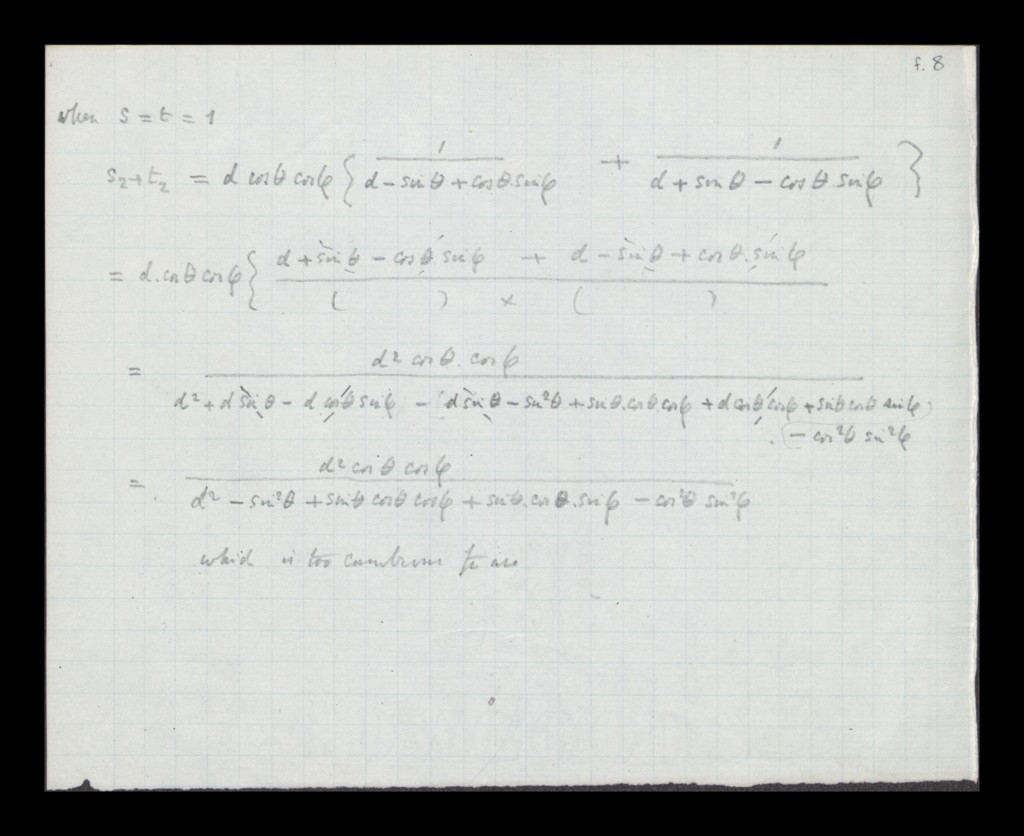 f. 8
when s = t = 1
s₂+t₂ = d cosθ cosφ { 1/(d − sinθ + cosθ.sinφ) + 1/(d + sinθ − cosθ sinφ) }
= d.cosθ cosφ { (d + sinθ − cosθ sinφ + d − sinθ + cosθ.sinφ)/(( ) × ( ))
= d² cosθ. cosφ
d² + d sinθ − d cosθ sinφ − (d sinθ − sin²θ + sinθ.cosθ.cosφ + d cosθ cosφ + sinθ cosθ sinφ)
− cos²θ sin²φ
= d² cosθ cosφ
d² − sin²θ + sinθ cosθ cosφ + sinθ.cosθ.sinφ − cos²θ sin²φ
which is too cumbrous for use